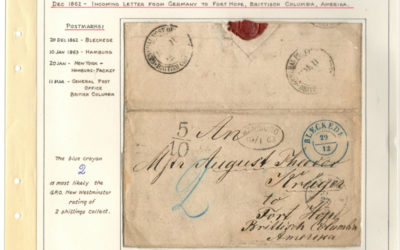 Dec 1862 - Incoming letter from Germany to Fort Hope, Brittisch Columbia, Amerika.
Postmarks:
29 Dec 1862 - Bleckede
10 Jan 1863 - Hamburg
20 Jan - New York
Hamburg-Packet
11 Mar - General Post
Office
British Columbia
The blue crayon
2
is most likely the
G.P.O. New Westminster
rating of
2 shillings collect.
5
10
An
BLECKEDE
29
12
2
August
Krüger
to
Fort Hope
Brittisch Columbia
Amerika